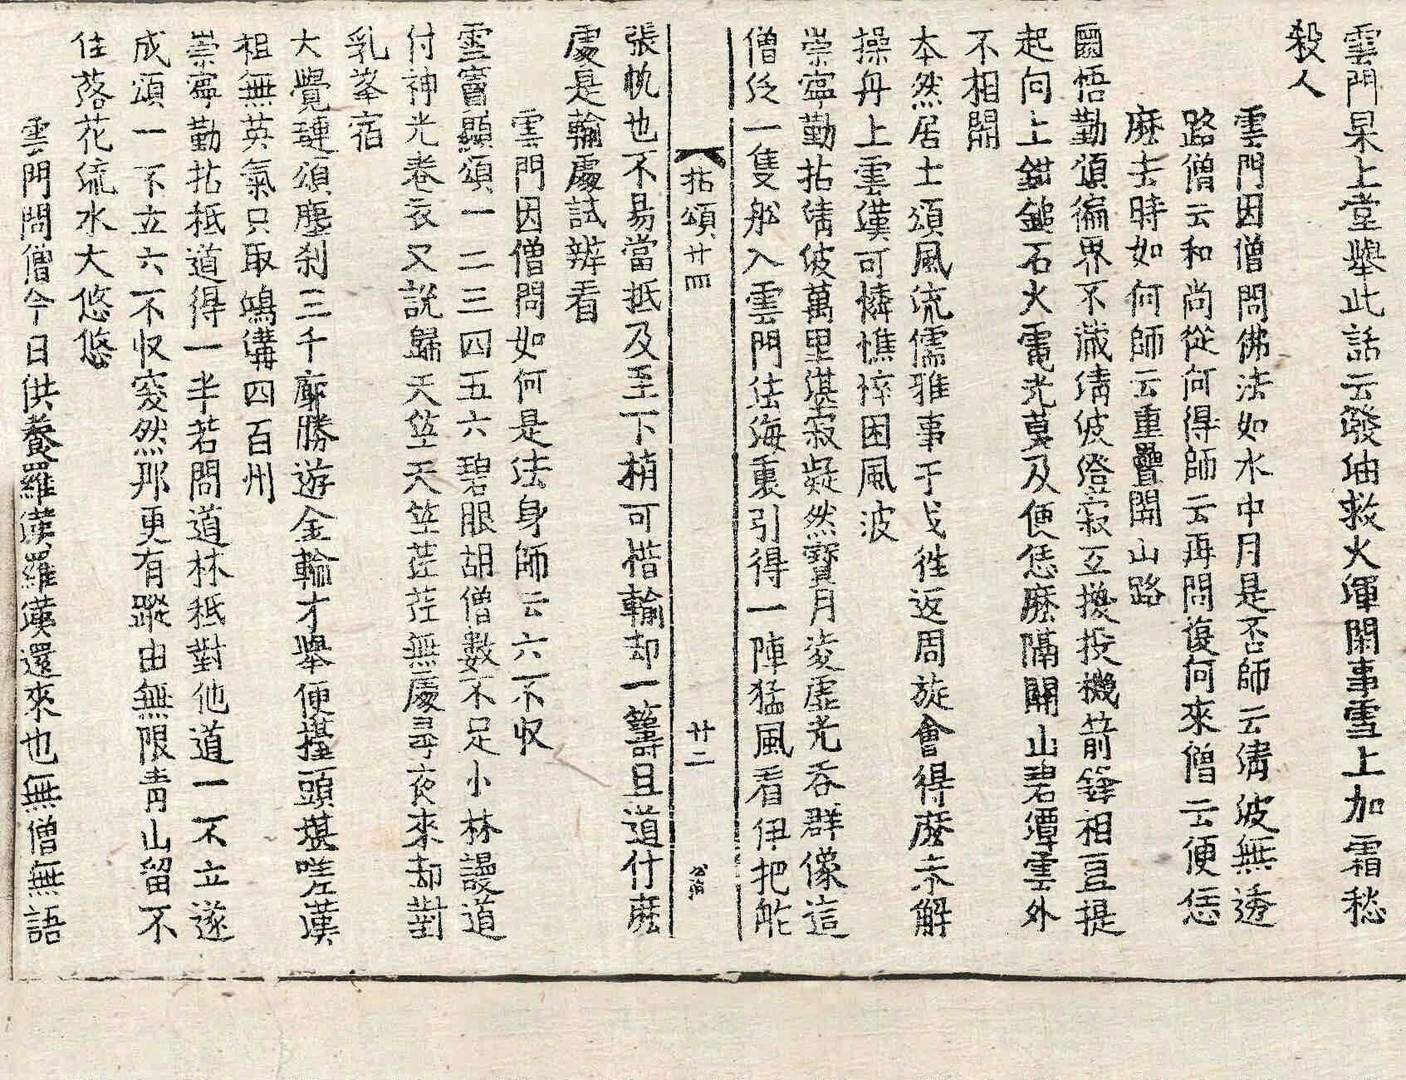 雲門杲上堂舉此話云潑油救火渾閑事雪上加霜愁
殺人
雲門因僧問佛法如水中月是否師云清波無透
路僧云和尚從何得師云再問復何來僧云便恁
麽去時如何師云重疊關山路
圓悟勤頌徧界不藏清波澄寂互換投機箭鋒相直提
起向上鉗鎚石火電光莫及便恁麽隔關山碧潭雲外
不相關
本然居士頌風流儒雅事于戈徃返周旋會得麽未解
操舟上雲漢可憐憔悴困風波
崇寧勤拈淸波萬里湛寂凝然寶月凌虛光吞群像這
僧泛一隻舩入雲門法海裏引得一陣猛風看伊把舵
拈頌廿四
廿二
張帆也不易當抵及至下梢可惜輸却一籌且道什麽
處是輸處試辨看
雲門因僧問如何是法身師云六不収
雪竇顯頌一二三四五六碧眼胡僧數不足小林謾道
付神光卷衣又說歸天竺天竺茫茫無處尋夜來却對
乳峯宿
大覺璉頌塵刹三千廓勝遊金輪才舉便擡頭堪嗟漢
祖無英氣只取鴻溝四百州
崇寧勤拈秪道得一半若問道林秪對他道一不立遂
成頌一不立六不収突然那更有蹤由無限靑山留不
住落花流水大悠悠
雲門問僧今日供養羅漢羅漢還來也無僧無語